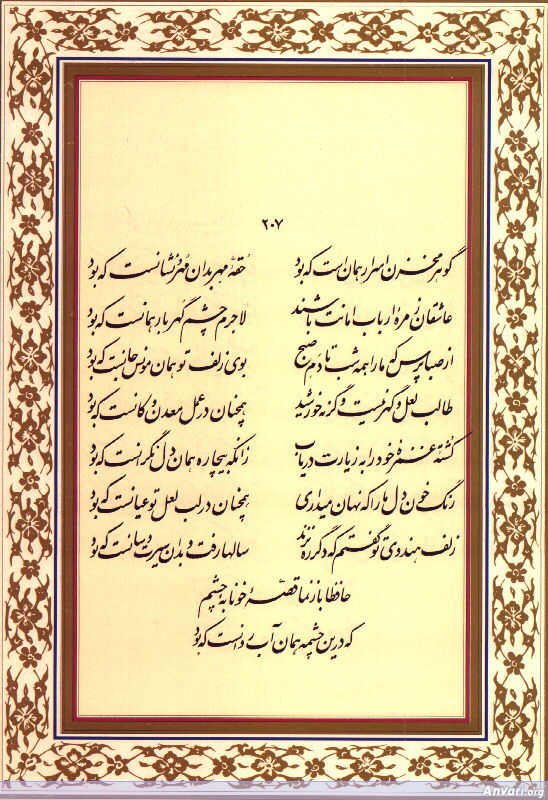 ۲۰۷
گوهر مخزن اسرار همان است که بود حقه مهر بدان مهر و نشانست که بود
عاشقان زمرهٔ ارباب امانت باشند لاجرم چشم گهربار همانست که بود
از صبا پرس که ما را همه شب تا دم صبح بوی زلف تو همان مونس جانست که بود
طالب لعل و گهر نیست وگرنه خورشید همچنان در عمل معدن و کانست که بود
کشتهٔ غمزهٔ خود را به زیارت دریاب زانکه بیچاره همان دل نگرانست که بود
رنگ خون دل ما را که نهان میداری همچنان در لب لعل تو عیانست که بود
زلف هندوی تو گفتم که دگر ره نزند سالها رفت و بدان سیرت و سانست که بود
حافظا باز نما قصهٔ خونابه چشم
که درین چشمه همان آب روانست که بود
Anvari.org